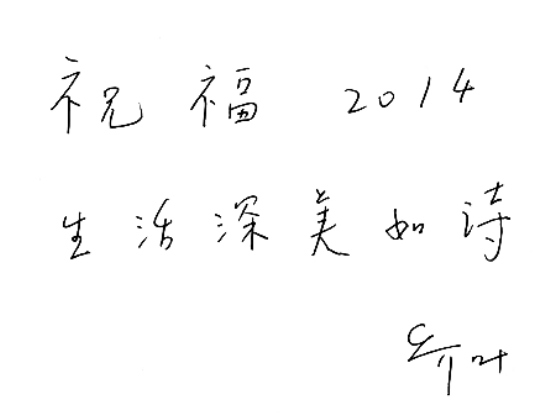 祝福 2014
生活深美如诗